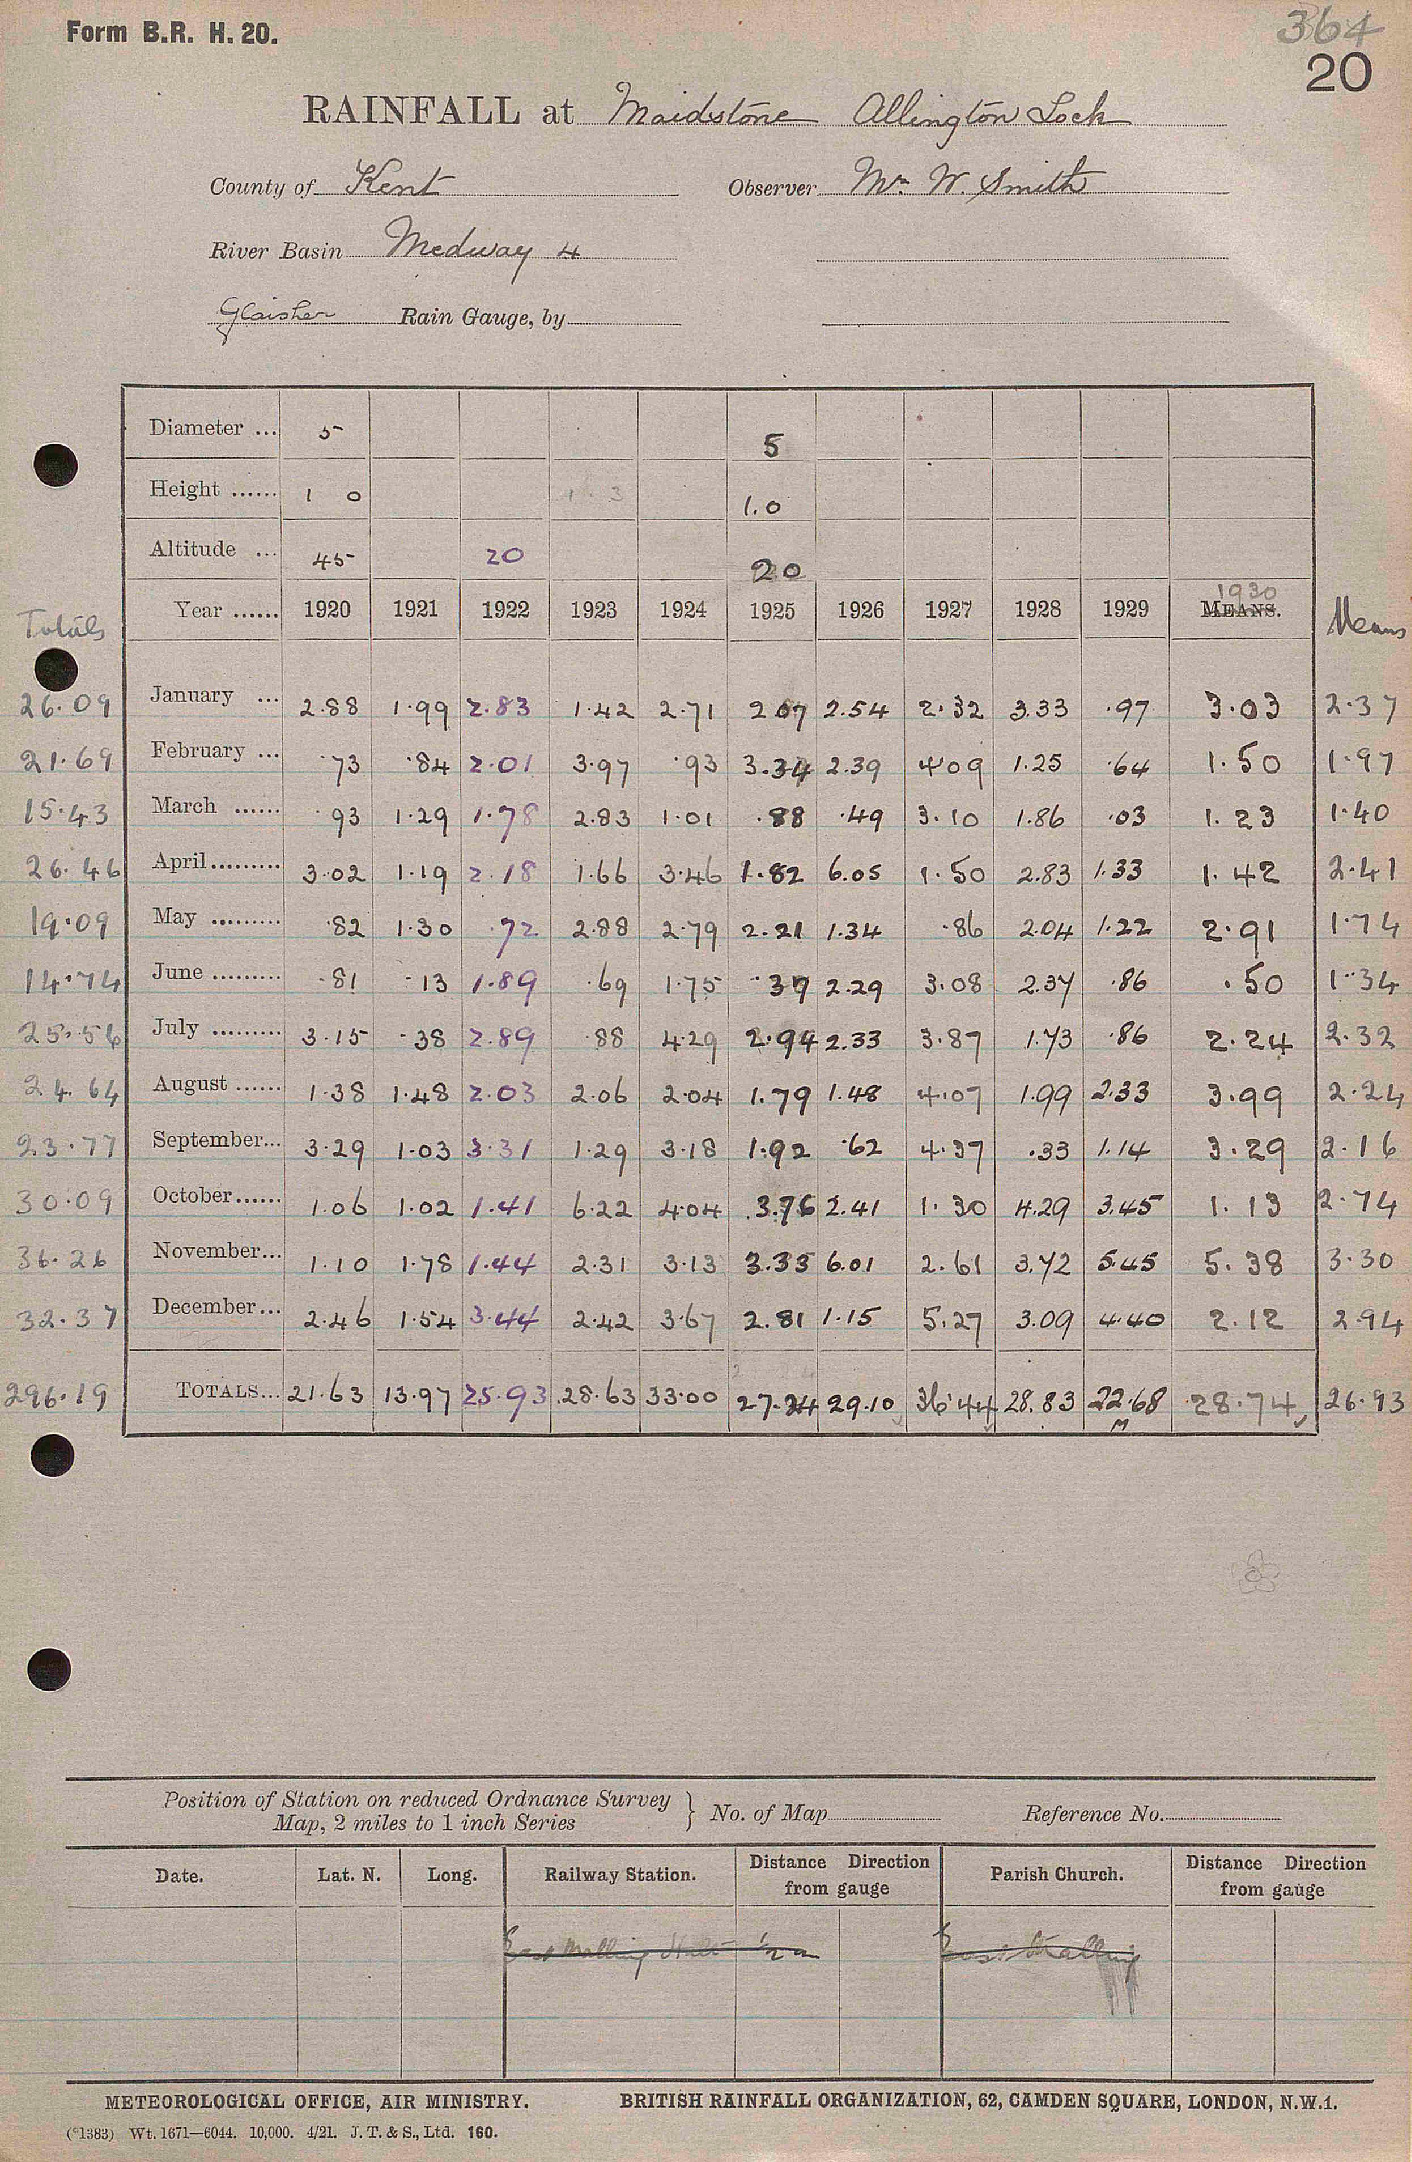 Form B.R. H. 20.
364
20
RAINFALL at Maidstone Allington Lock
County of Kent Observer Mr. W. Smith
River Basin Medway 4
Glaisher Rain Gauge, by
Diameter ... 5 5
Height ...... 1 0 1 . 3 1.0
Altitude ... 45 20 20
1930
Totals Year ...... 1920 1921 1922 1923 1924 1925 1926 1927 1928 1929 MEANS. Means
26.09 January ... 2.88 1.99 2.83 1.42 2.71 2.07 2.54 2.32 3.33 .97 3.03 2.37
21.69 February ... .73 .84 2.01 3.97 .93 3.34 2.39 4.09 1.25 .64 1.50 1.97
15.43 March ...... .93 1.29 1.78 2.83 1.01 .88 .49 3.10 1.86 .03 1.23 1.40
26.46 April......... 3.02 1.19 2.18 1.66 3.46 1.82 6.05 1.50 2.83 1.33 1.42 2.41
19.09 May ......... .82 1.30 .72 2.88 2.79 2.21 1.34 .86 2.04 1.22 2.91 1.74
14.74 June ......... .81 .13 1.89 .69 1.75 .39 2.29 3.08 2.37 .86 .50 1.34
25.56 July ......... 3.15 .38 2.89 .88 4.29 2.94 2.33 3.87 1.73 .86 2.24 2.32
24.64 August ...... 1.38 1.48 2.03 2.06 2.04 1.79 1.48 4.07 1.99 2.33 3.99 2.24
23.77 September... 3.29 1.03 3.31 1.29 3.18 1.92 .62 4.37 .33 1.14 3.29 2.16
30.09 October...... 1.06 1.02 1.41 6.22 4.04 3.76 2.41 1.30 4.29 3.45 1.13 2.74
36.26 November... 1.10 1.78 1.44 2.31 3.13 3.33 6.01 2.61 3.72 5.45 5.38 3.30
32.37 December... 2.46 1.54 3.44 2.42 3.67 2.81 1.15 5.27 3.09 4.40 2.12 2.94
296.19 TOTALS... 21.63 13.97 25.93 28.63 33.00 27.24 29.10 36.44 28.83 22.68 28.74 26.93
Position of Station on reduced Ordnance Survey
Map, 2 miles to 1 inch Series } No. of Map Reference No.
Date. Lat. N. Long. Railway Station. Distance Direction from gauge Parish Church. Distance Direction from gauge
East Malling Halt 1/2 m East Malling
METEOROLOGICAL OFFICE, AIR MINISTRY. BRITISH RAINFALL ORGANIZATION, 62, CAMDEN SQUARE, LONDON, N.W.1.
(*1383) Wt. 1671—6044. 10,000. 4/21. J. T. & S., Ltd. 160.